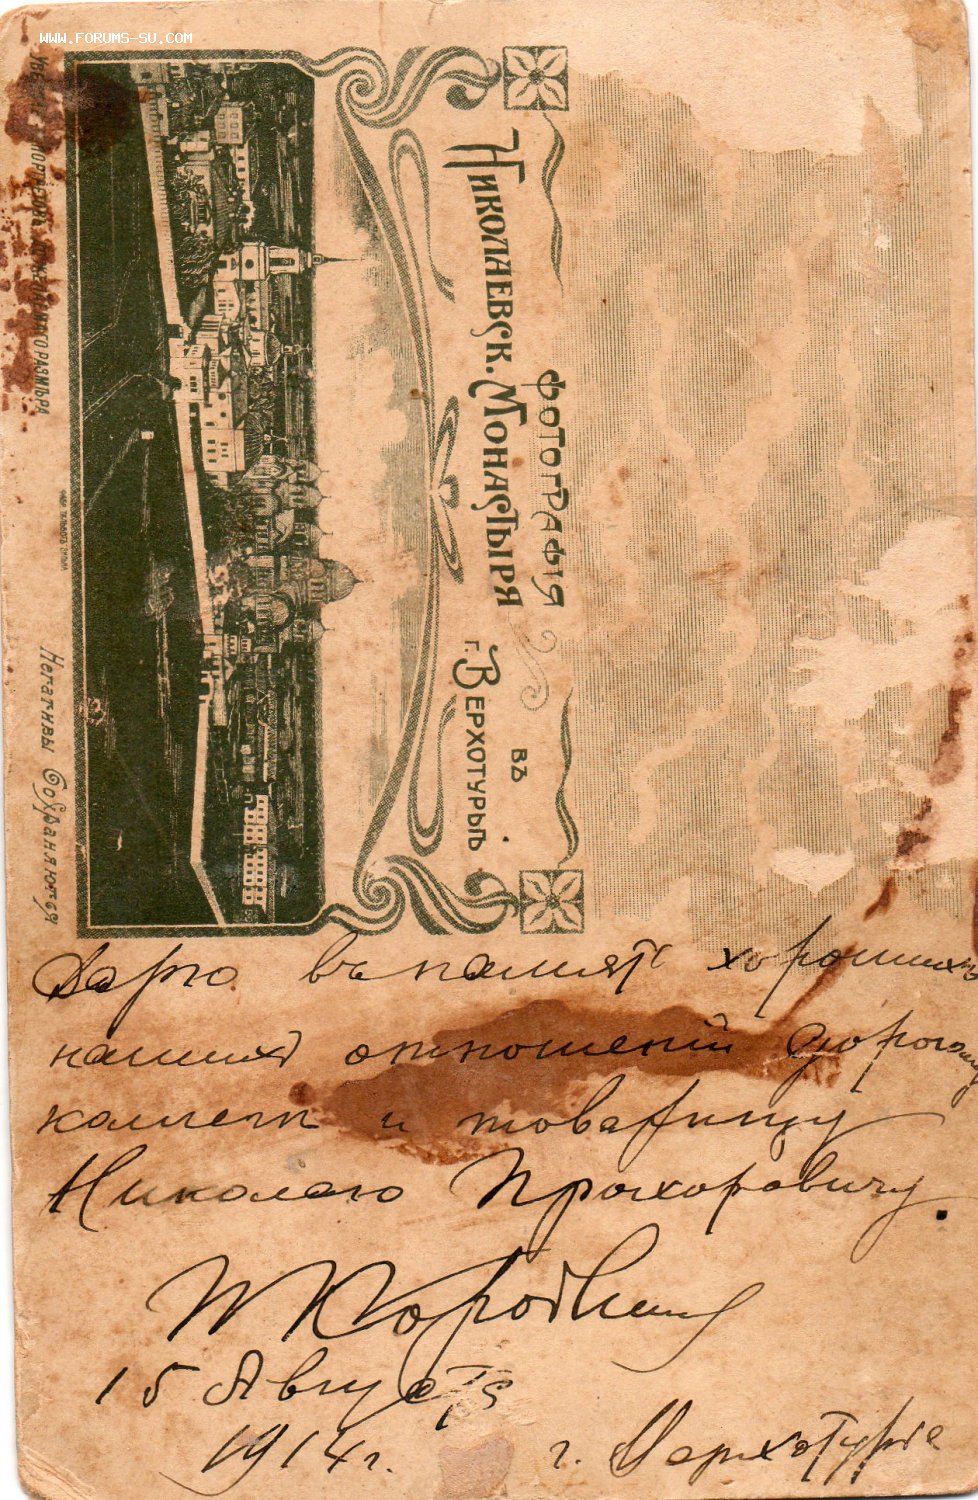 www.forums-su.com
ФОТОГРАФІЯ
НИКОЛАЕВСК. МОНАСТЫРЯ
въ
г. ВЕРХОТУРЬѢ
Негативы Сохраняются
Дарю въ память хорошихъ
нашихъ отношений дорогому
коллеги и товарищу
Николаю Прохоровичу.
15 Августа
1914 г. г. Верхотурье